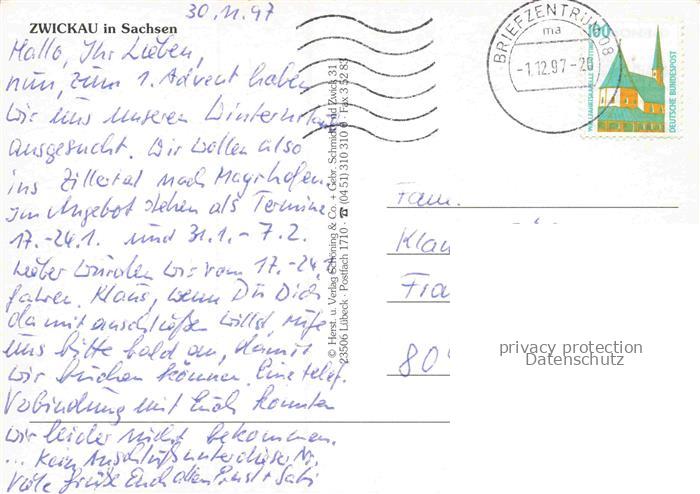 30.11.97
ZWICKAU in Sachsen
Hallo, Ihr Lieben,
nun, zum 1. Advent haben
wir uns unseren Winterurlaub
ausgesucht. Wir wollen also
ins Zillertal nach Mayrhofen.
Im Angebot stehen als Termine
17.-24.1. und 31.1. - 7.2.
Lieber würden wir vom 17.-24.1.
fahren. Klaus, wenn Du Dich
damit anschließen willst, rufe
uns bitte bald an, damit
wir buchen können. Eine telef.
Verbindung mit Euch konnten
wir leider nicht bekommen.
... Kein Anschluß unter dieser Nr.
Viele Grüße Euch allen Ernst + Gabi
© Herst. u. Verlag Schöning & Co. + Gebr. Schmidt
23506 Lübeck · Postfach 1710 · ☎ (04 51) 310 310 · Fax 3 52 83
BRIEFZENTRUM 08
ma
-1.12.97-20
100
WALLFAHRTSKAPELLE ALTÖTTING
DEUTSCHE BUNDESPOST
Fam.
Klau
Fra
80
privacy protection
Datenschutz